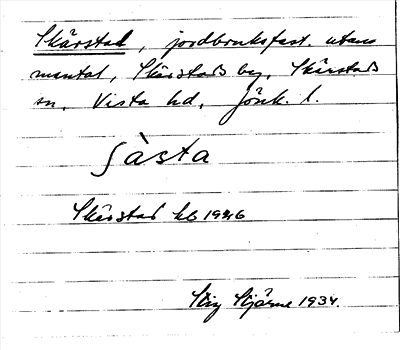 Skärstad, jordbruksfast. utan
mantal, Skärstads by, Skärstads
sn, Vista hd, Jönk. l.
ʃàsta
Skärstad kb 1946
Stig Stjärne 1934.